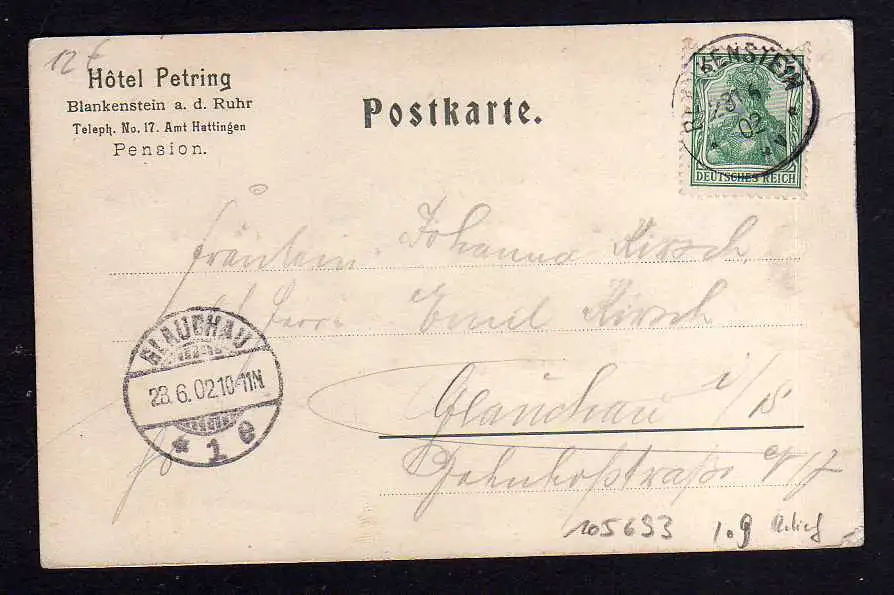 12 €
Hôtel Petring
Blankenstein a. d. Ruhr
Teleph. No. 17. Amt Hattingen
Pension.
Postkarte.
BLANKENSTEIN
02
DEUTSCHES REICH
Fräulein Johanna Kirsch
Herrn Emil Kirsch
Glauchau i/S
Bahnhofstraße
GLAUCHAU
23.6.02.10-11N.
* 1 e
105693 1.9